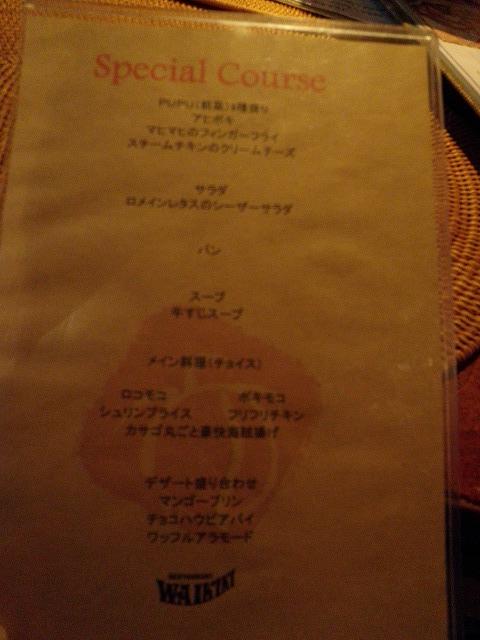 Special Course
PUPU(前菜)3種盛り
アヒポキ
マヒマヒのフィンガーフライ
スチームチキンのクリームチーズ
サラダ
ロメインレタスのシーザーサラダ
パン
スープ
牛すじスープ
メイン料理(チョイス)
ロコモコ ポキモコ
シュリンプライス フリフリチキン
カサゴ丸ごと豪快海賊揚げ
デザート盛り合わせ
マンゴープリン
チョコハウピアパイ
ワッフルアラモード
RESTAURANT
WAIKIKI